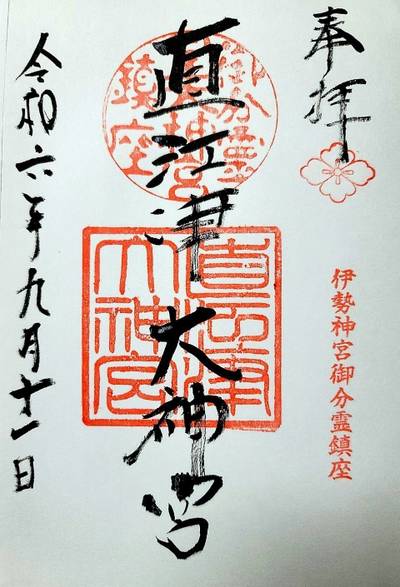 奉拝
伊勢神宮御分霊鎮座
直江津大神宮
御分霊
鎮座
直江津
大神宮
令和六年九月十一日